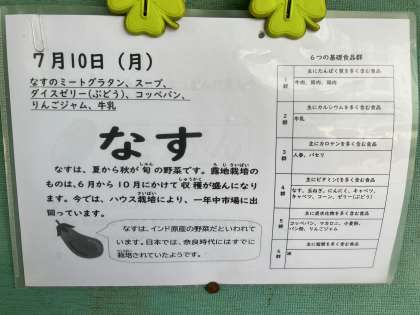 7月10日（月）
なすのミートグラタン、スープ、
ダイスゼリー(ぶどう)、コッペパン、
りんごジャム、牛乳
なす
なすは、夏から秋が旬の野菜です。露地栽培の
ものは、6月から10月にかけて収穫が盛んになり
ます。今では、ハウス栽培により、一年中市場に出
回っています。
なすは、インド原産の野菜だといわれて
います。日本では、奈良時代にはすでに
栽培されていたようです。
6つの基礎食品群
主にたんぱく質を多く含む食品
1群
牛肉、豚肉、鶏肉
主にカルシウムを多く含む食品
2群
牛乳
主にカロテンを多く含む食品
3群
人参、パセリ
主にビタミンCを多く含む食品
4群
なす、玉ねぎ、にんにく、キャベツ、
コーン、ゼリー(ぶどう)
主に炭水化物を多く含む食品
5群
コッペパン、マカロニ、小麦粉、
パン粉、りんごジャム
主に脂質を多く含む食品
6群
油